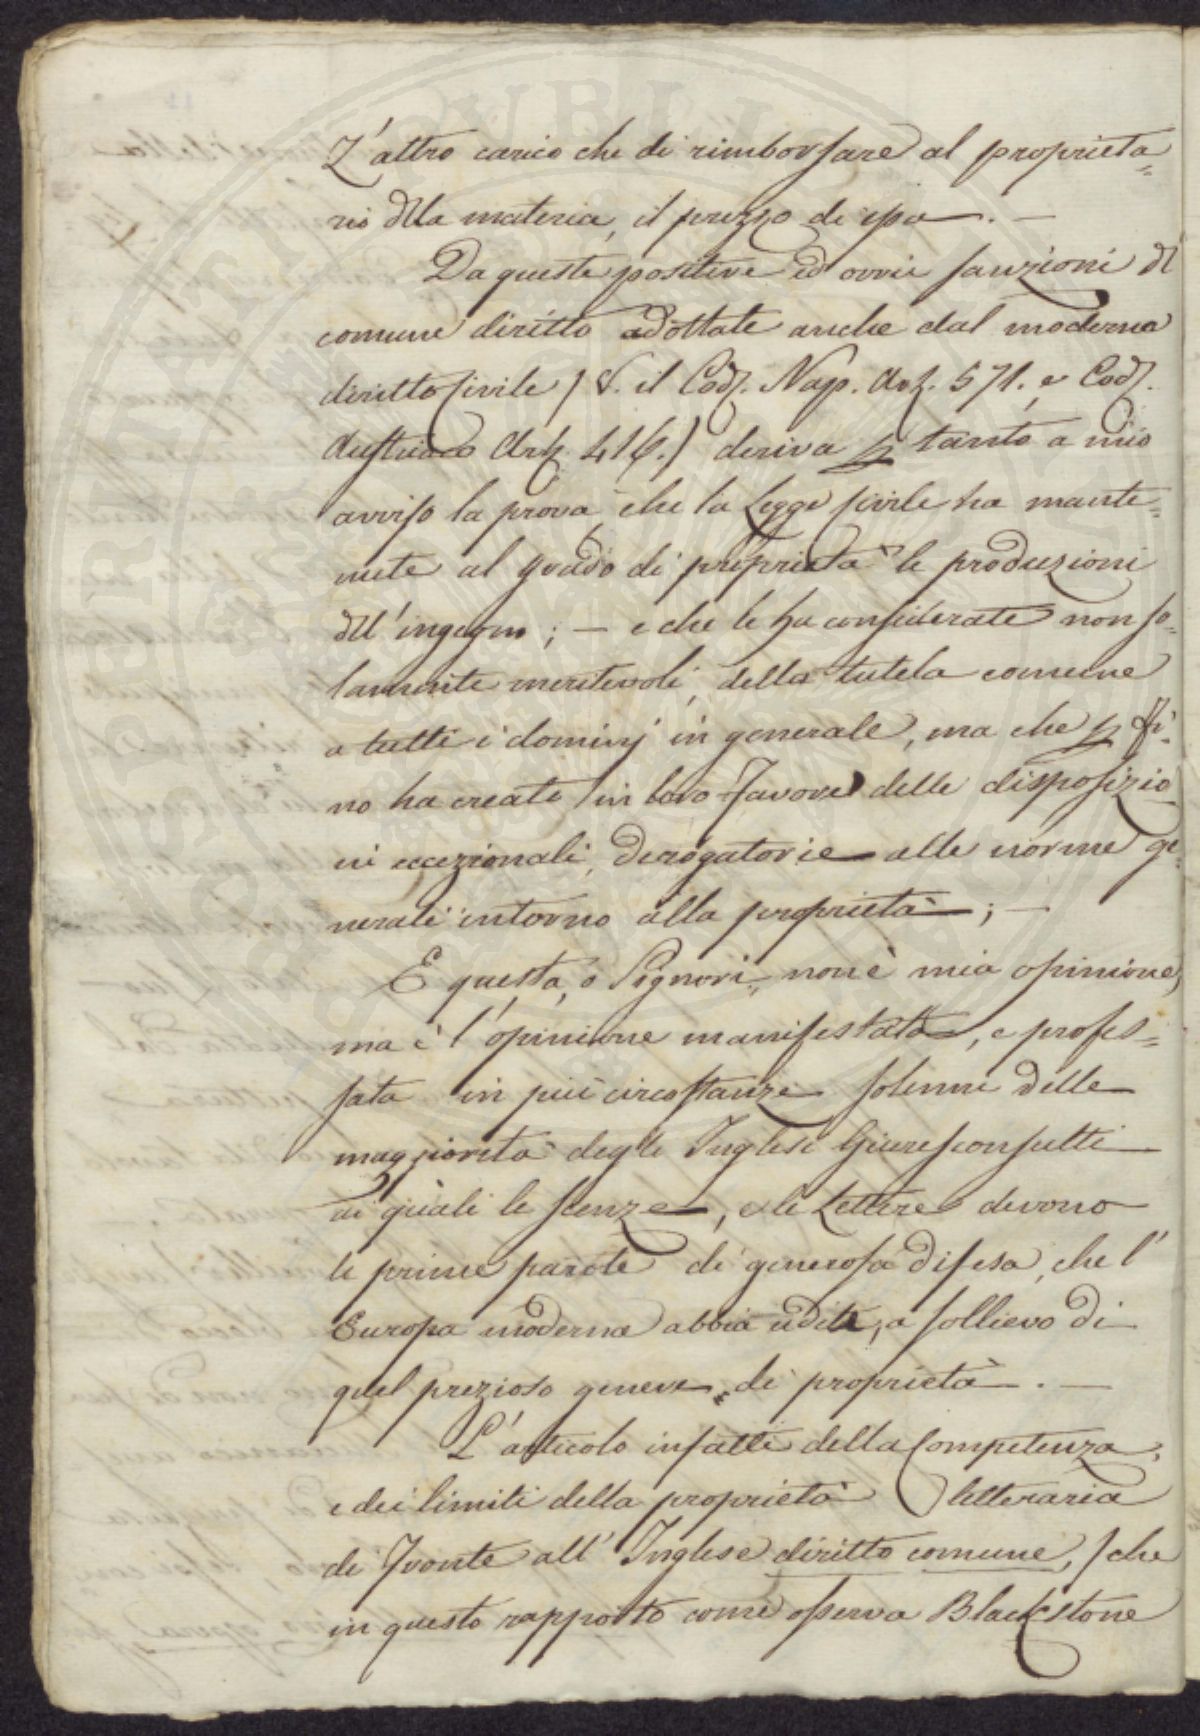 L'altro carico che di rimborsare al proprieta=
rio della materia, il prezzo di essa. —
Da queste positive ed ovvie sanzioni del
comune diritto adottate anche dal moderno
diritto Civile (V. il Cod. Nap. Art. 571. e Cod.
Austriaco Art. 416.) deriva p tanto a mio
avviso la prova, che la Legge Civile ha mante=
nute al grado di proprietà le produzioni
dell'ingegno; — e che le ha considerate non so=
lamente meritevoli, della tutela comune
a tutti i dominj in generale, ma che p fi=
no ha creati in loro favore delle disposizio
ni eccezionali, derogatorie alle norme ge=
nerali intorno alla proprietà; —
E questa, o Signori, non è mia opinione,
ma è l'opinione manifestata, e profes=
sata in più circostanze solenni delle
maggiorità degli Inglesi Giuresconsulti
ai quali le scenze, e le Lettere devono
le prime parole di generosa difesa, che l'
Europa moderna abbia udite, a sollievo di
quel prezioso genere di proprietà. —
L'articolo infatti della Competenza,
e dei limiti della proprietà letteraria
di fronte all'Inglese diritto comune, (che
in questo rapporto come osserva Blackstone